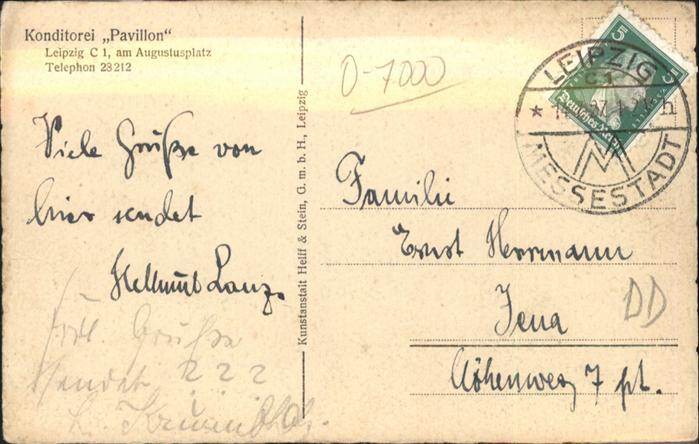 Konditorei „Pavillon"
Leipzig C 1, am Augustusplatz
Telephon 28212
Viele Grüße von
hier sendet
Hellmut Lanz.
Grüße
sendet 2 2 2
Kunstanstalt Helff & Stein, G. m. b. H., Leipzig
O-7000
5 5
Deutsches Reich
LEIPZIG
C 1
27
h
M
MESSESTADT
Familie
Ernst Herrmann
Jena
DD
Höhenweg 7 pt.